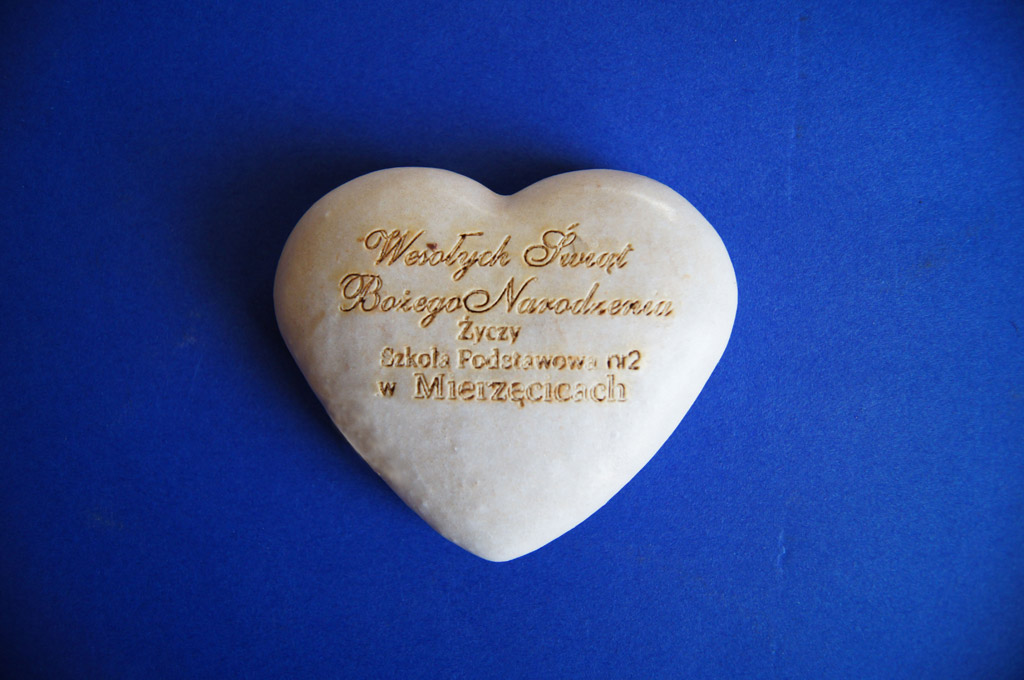 Wesołych Świąt
Bożego Narodzenia
Życzy
Szkoła Podstawowa nr2
w Mierzęcicach